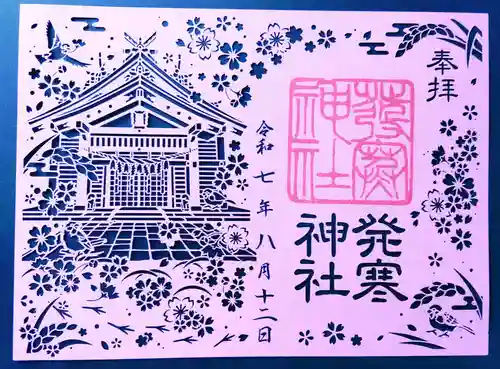 奉拝
發寒
神社
發寒
神社
令和七年八月十二日